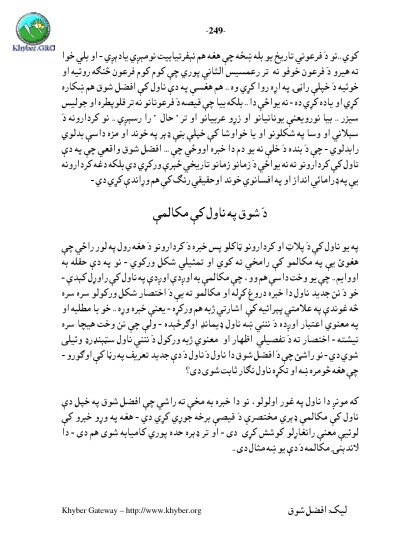 -249-
Khyber.ORG
کوي..نو دَ فرعوني تاريخ يو بله ښځه چې هغه هم نېفرتيابيت نومېږي ياد ېږي - او بلې خوا
ته هيرو دَ فرعون خوفو نه تر رعمسيس الثاني پوري چې کوم کوم فرعون څنګه روئيه او
خوئيه دَ خپلې راڼۍ په اړه روا کړي وه .. هم هغسې په دې ناول کې افضل شوق هم ښکاره
کړي او ياده کړې ده - نه يواځې دا .. بلکه بيا چې قيصه دَ فرعونانو نه تر قلوپطره او جوليس
سيزر .. بيا نورويعنې يونانيانو او زړو عربيانو او تر " حال " را رسېږي .. نو کردارونه دَ
سيلانې او وسا په شکلونو او يا خواوشا کې خپلې يني ډېر په خوند او مزه داسې بدلوي
رابدلوي - چې دَ بنده دَ خلې نه يو دم دا خبره اووځي چې ... افضل شوق واقعې چې په دې
ناول کې کردارونو ته نه يواځې دَ زمانو زمانو تاريخي څېرې ورکړې دي بلکه دغه کردارونه
يې په ډرامائي انداز او په افسانوي خوند اوحقيقي رنګ کې هم وړاندې کړې دي -
دَ شوق په ناول کې مکالمې
په يو ناول کې دَ پلاټ او کردارونو ټاکلو پس خبره دَ کردارونو دَ هغه رول په لور راځي چې
هغوئ يې په مکالمو کې رامخې ته کوي او تمثيلي شکل ورکوي - نو په دې حقله به
اووايم .. چې يو وخت داسې هم وو ، چې مکالمې به اوږدې اوږدې په ناول کې راوړل کېدې -
خو دَ نن جديد ناول دا خبره دروغ کړله او مکالمو ته يې دَ اختصار شکل ورکولو سره سره
څه غوندې په علامتي پېرائيه کې اشارتي ژبه هم ورکړه - يعنې خبره وړه .. خو يا مطلبه او
په معنوي اعتبار اوږده دَ ننني ښه ناول ډيمانډ اوګرځېده - ولې چې نن وخت هيچا سره
نيشته - اختصار ته دَ تفصيلي اظهار او معنوي ژبه ورکول دَ ننني ناول سټينډرډ وئيلی
شوي دي - نو راشئ چې دَ افضل شوق دا ناول دَ ناول دَ دې جديد تعريف په رڼا کې اوګورو -
چې هغه څومره ښه او تکړه ناول نګار ثابت شوی دی؟
که مونږ دا ناول په غور اولولو ، نو دا خبره به مخې ته راشي چې افضل شوق په خپل دې
ناول کې مکالمې ډېرې مختصرې دَ قيصې برخه جوړې کړې دي - هغه په وړو خبرو کې
لوئيې معنې رانغاړلو کوشش کړی دی - او تر ډېره حده پورې کاميابه شوی هم دی - دا
لاندېنۍ مکالمه دَ دې يو ښه مثال دی ..
Khyber Gateway – http://www.khyber.org
ليک: افضل شوق